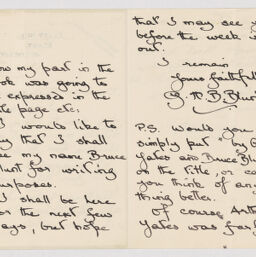 ow my part in the
ook was going to
expressed in the
le page etc:
I would like to
ay that I shall
se my name Bruce
lunt for writing
urposes.
I shall be here
or the next few
ays, but hope
that I may see y
before the week is
out.
I remain
Yours faithfull
G. R. B. Blun
P.S. Would you
simply put "by G
Yates and Bruce Blun
on the title, or ca
you think of any
thing better.
Of course Arth
Yates was far